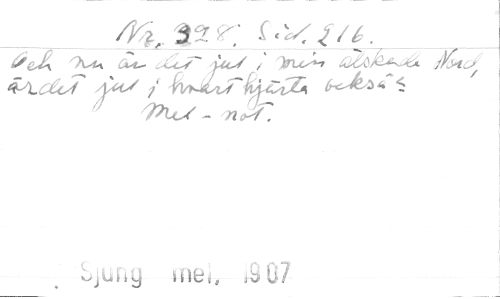 Nr. 328. Sid. 216.
Och nu är det jul i min älskade Nord,
är det jul i hvart hjärta också?
Mel-not.
Sjung mel, 1907